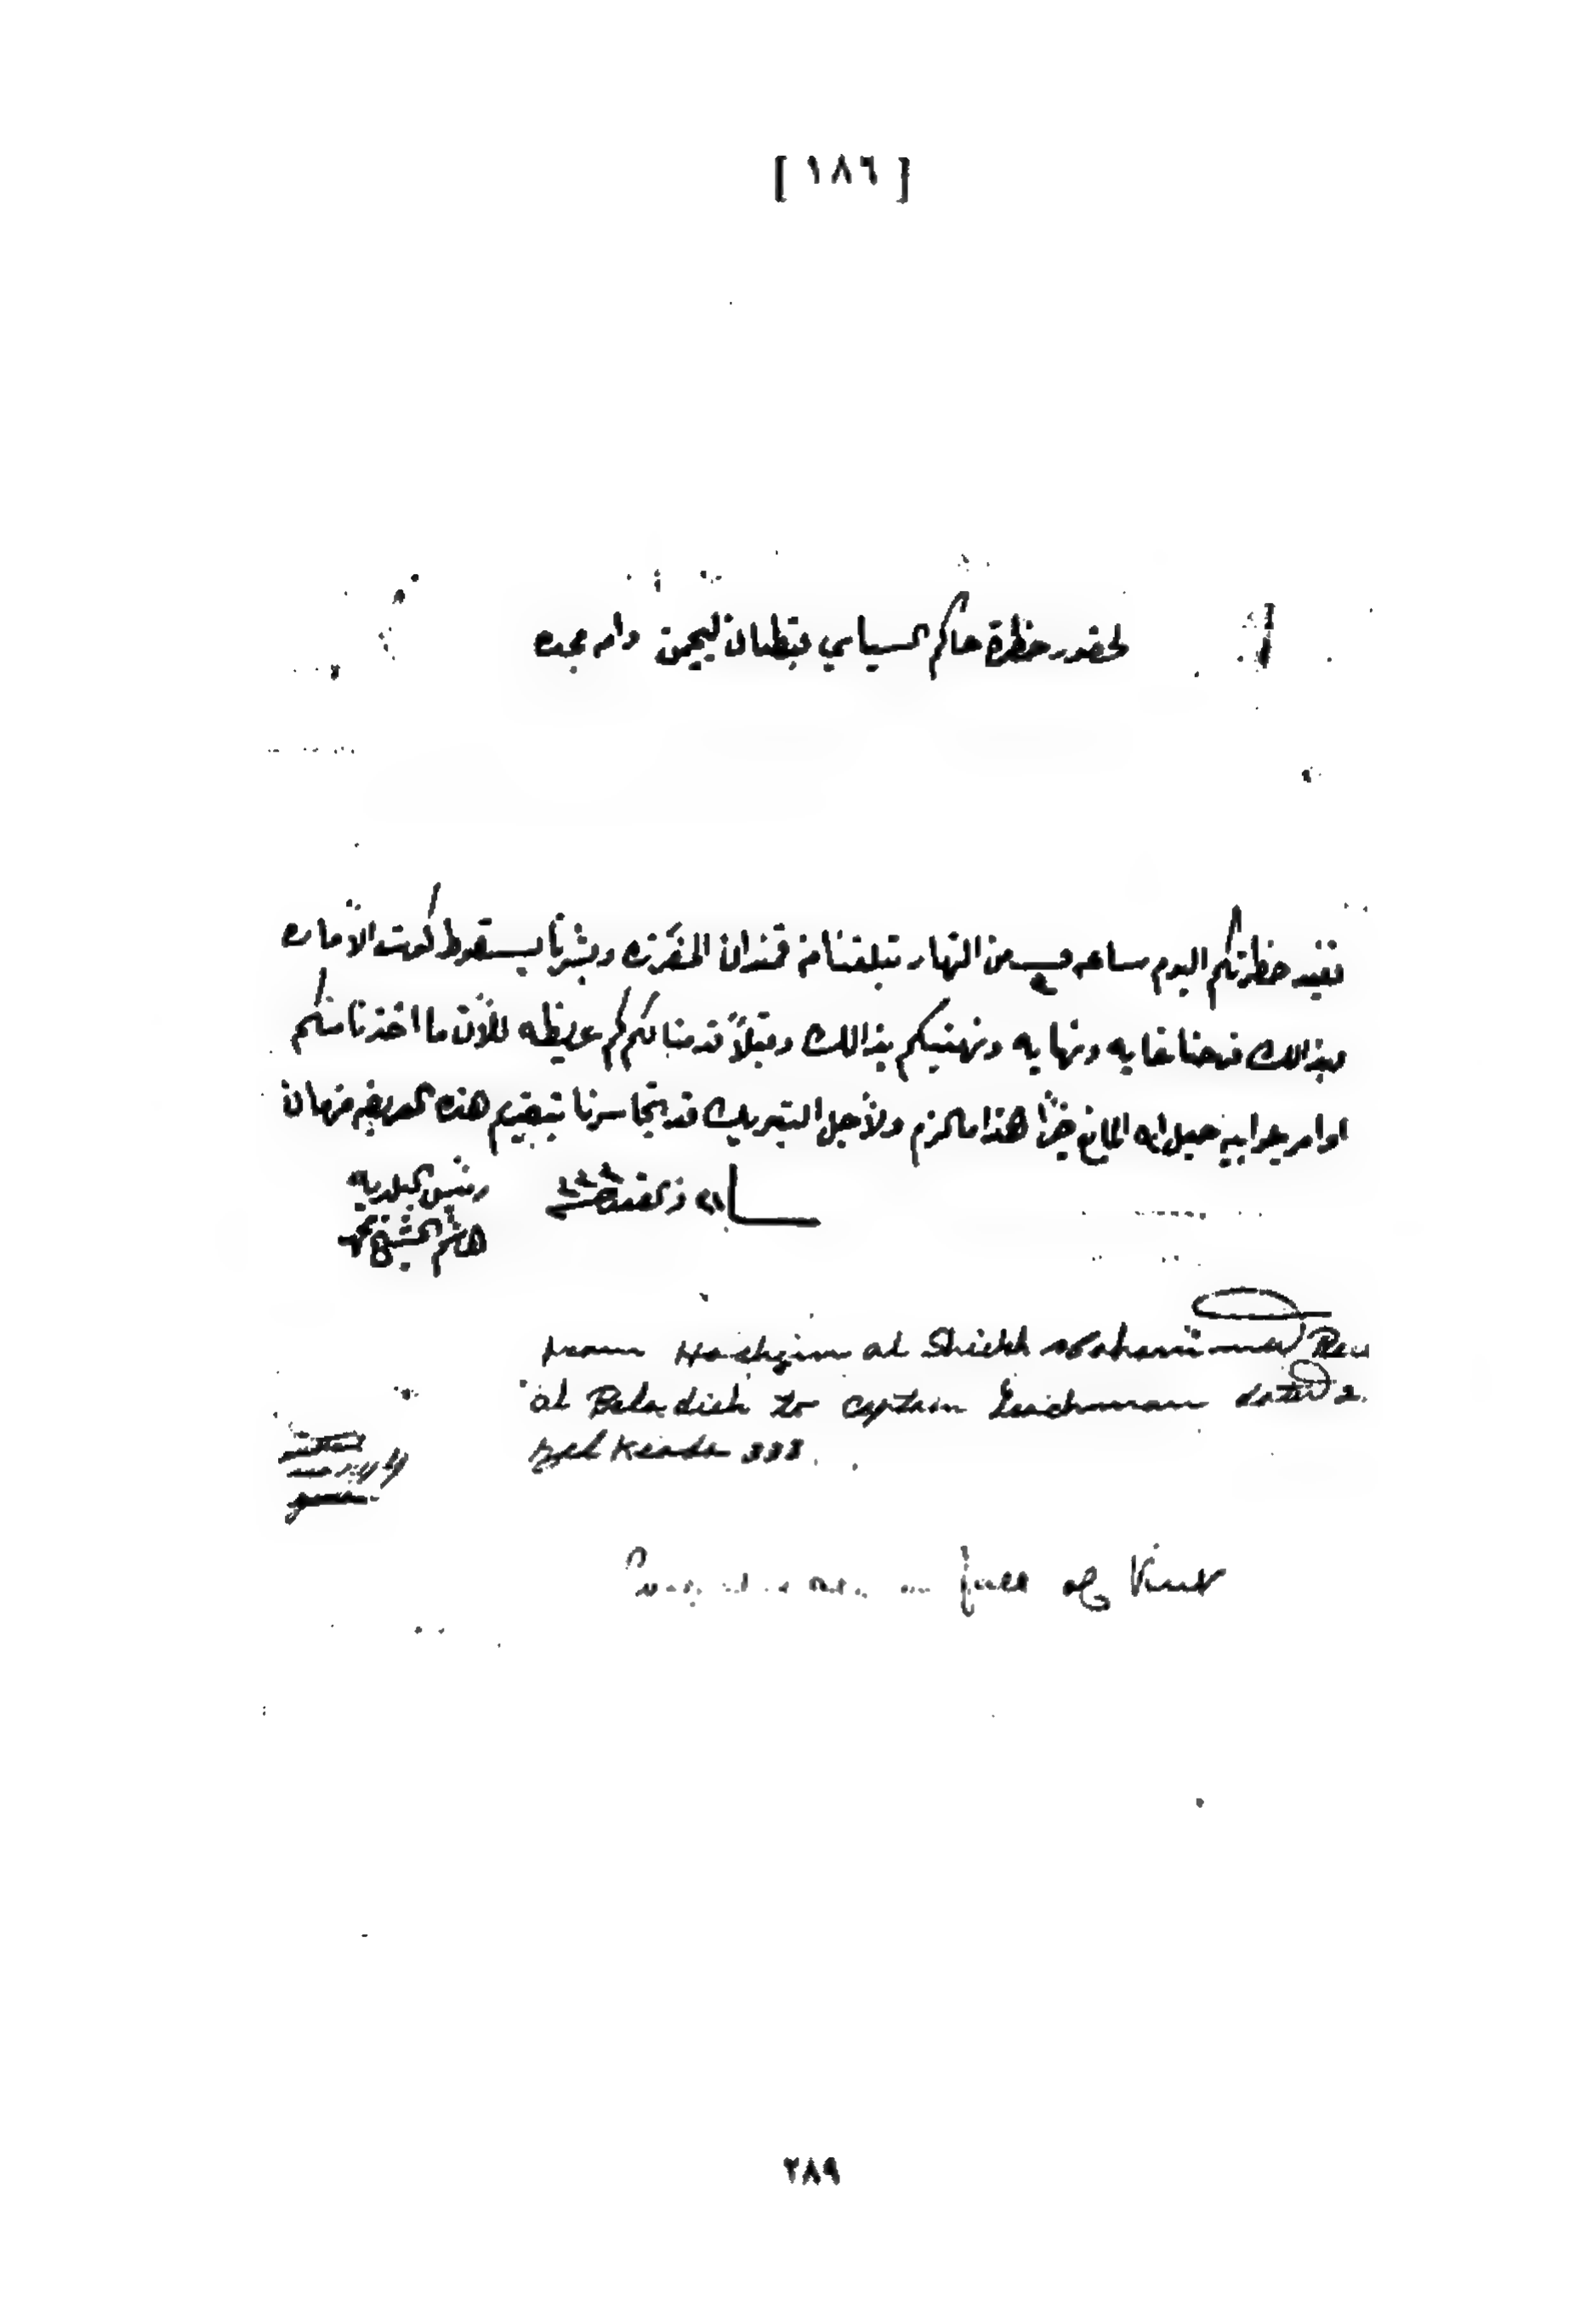 [ ١٨٦ ]
لحضور حظرة حاكم السياسي قبطان ليجمن دام مجده
نفيد حظرتكم اليوم ساعه من النهار تبلغنا من قمندان المفرزه وبشرنا بسقوط كوت الاماره
وبذالك فرحنا غايه ونهايه ونهنيكم بذالك وقبلاً قدمنا لكم عليظه للآن ما اخذنا منكم
اوامر جوابيه جعل الله المانع خيراً هذا مالزم ولأجل التبريك قد تجاسرنا بتقديم هذه العريضه
رئيس البلديه
هاشم الشيخ محمد
From Hashim al Shiekh Mohammed Reis
al Beladieh to Captain Leachman dated 2.
Zel Keade 333.
on fall of Kut
٢٨٩